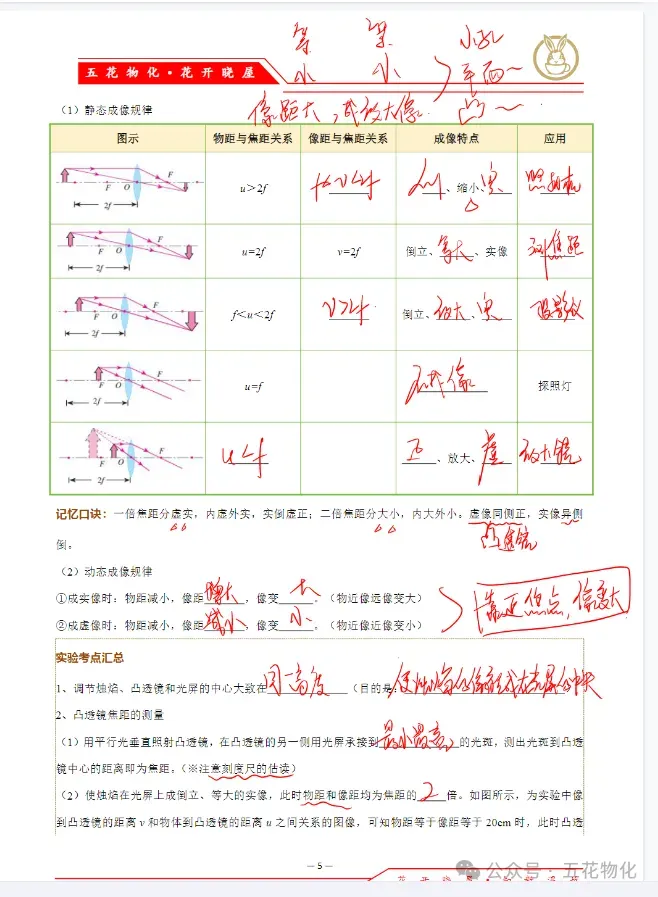 等 等 小孔
五花物化·花开晓屋 小 小 平面～
像距大，成放大像． 凸～
（1）静态成像规律
图示 物距与焦距关系 像距与焦距关系 成像特点 应用
F O F 2f u＞2f f<v<2f 倒立、缩小、实 照相机
F O F 2f u=2f v=2f 倒立、等大、实像 测焦距
F O F 2f f＜u＜2f v>2f 倒立、放大、实 投影仪
F O F 2f u=f 不成像 探照灯
F O F 2f u<f 正、放大、虚 放大镜
记忆口诀：一倍焦距分虚实，内虚外实，实倒虚正；二倍焦距分大小，内大外小。虚像同侧正，实像异侧
倒。
（2）动态成像规律
①成实像时：物距减小，像距增大，像变大。（物近像远像变大）
②成虚像时：物距减小，像距减小，像变小。（物近像近像变小）
靠近焦点，像变大
实验考点汇总
1、调节烛焰、凸透镜和光屏的中心大致在同一高度（目的是：使烛焰的像能成在光屏的中央
2、凸透镜焦距的测量
（1）用平行光垂直照射凸透镜，在凸透镜的另一侧用光屏承接到最小最亮的光斑，测出光斑到凸透
镜中心的距离即为焦距。（※注意刻度尺的估读）
（2）使烛焰在光屏上成倒立、等大的实像，此时物距和像距均为焦距的2倍。如图所示，为实验中像
到凸透镜的距离 v 和物体到凸透镜的距离 u 之间关系的图像，可知物距等于像距等于 20cm 时，此时凸透
－5－
公众号·五花物化